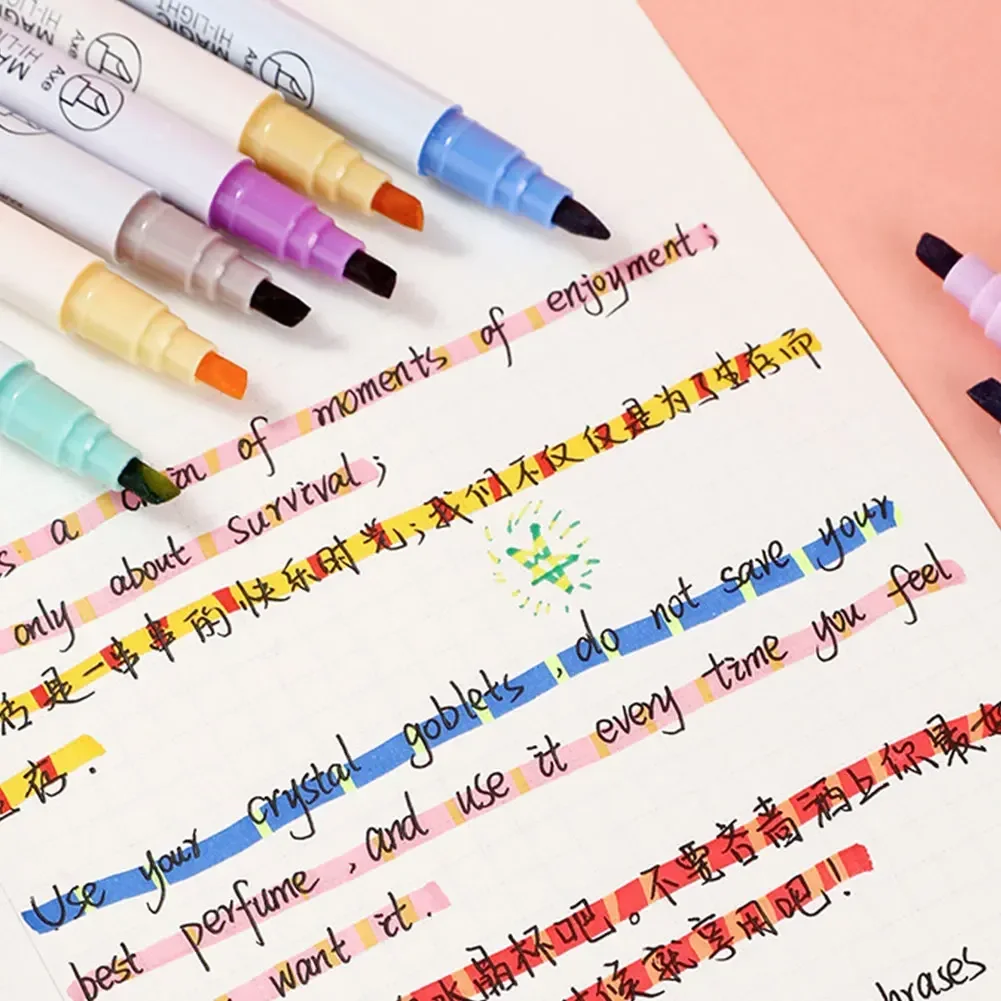 MAGIC
HI-LIGHT
MAGIC
HI-LIGHT
Axe
MA
HI-LIGHT
Axe
s a chain of moments of enjoyment;
only about survival;
活是一串串的快乐时光;我们不仅仅是为了生存而
生存.
Use your crystal goblets, do not save your
best perfume, and use it every time you feel
want it.
水晶杯吧。不要吝啬洒上你最好
时候就享用吧!
phrases